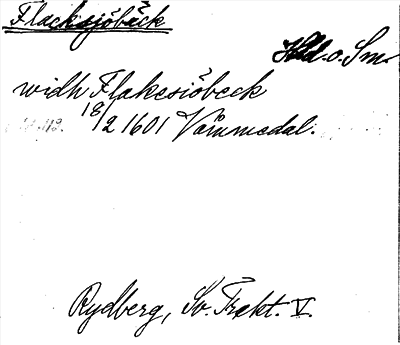 Flacksjöbäck
Hld. o. Sm.
widh Flakesiöbeck
18/2 1601 Vämmedal.
Rydberg, Sv. Trakt. V.